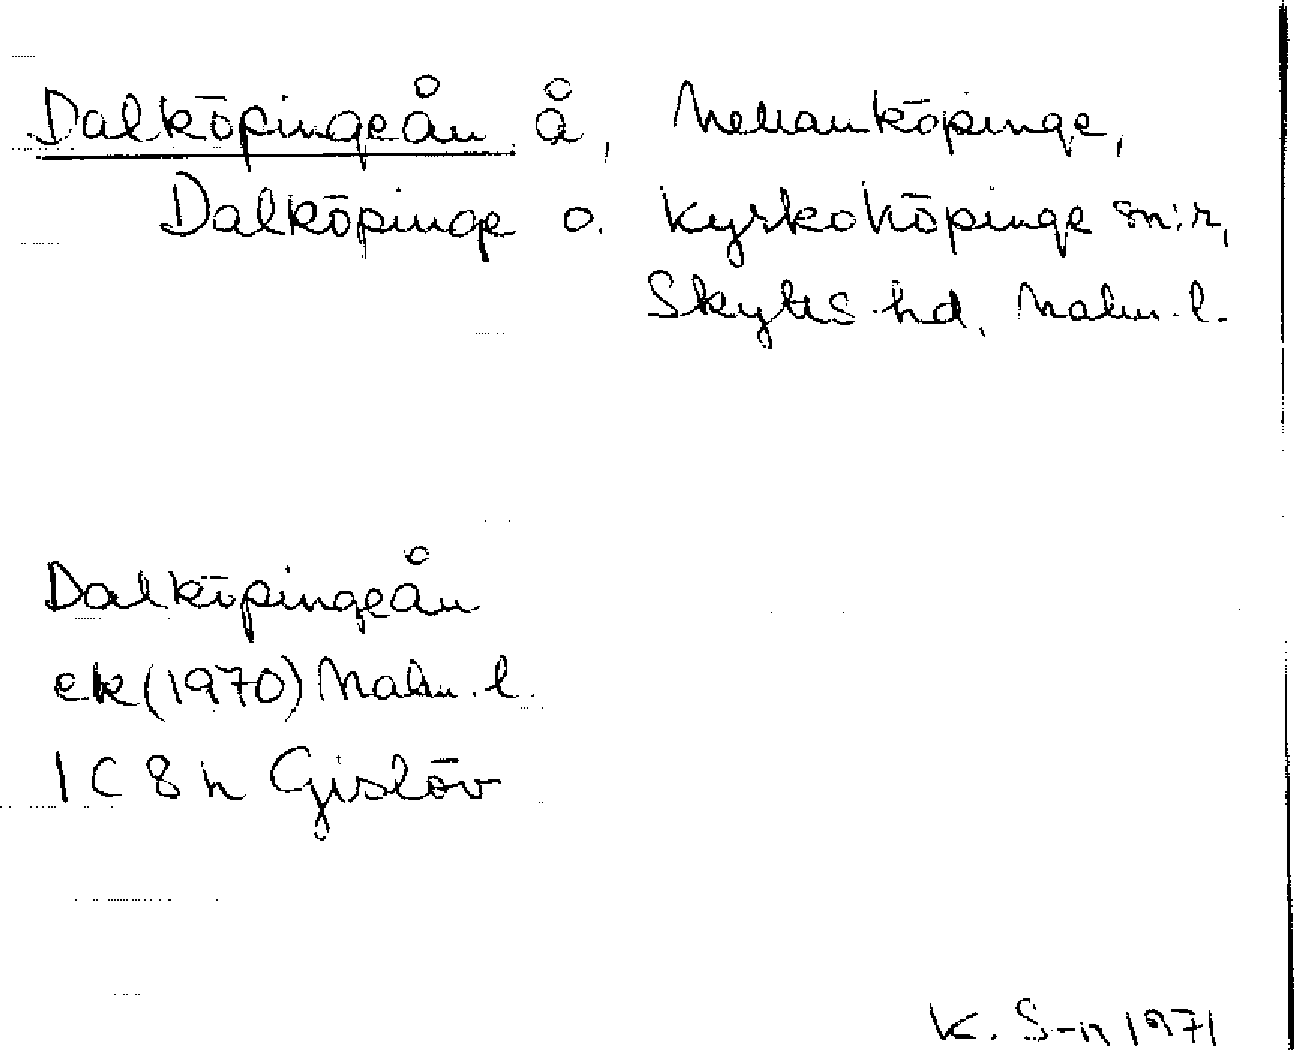 Dalköpingeån å, Mellanköpinge,
Dalköpinge o. Kyrkoköpinge sn:r,
Skytts hd, Malm. l.
Dalköpingeån
ek (1970) Malm. l.
1 C 8 h Gislöv
K. S-n 1971